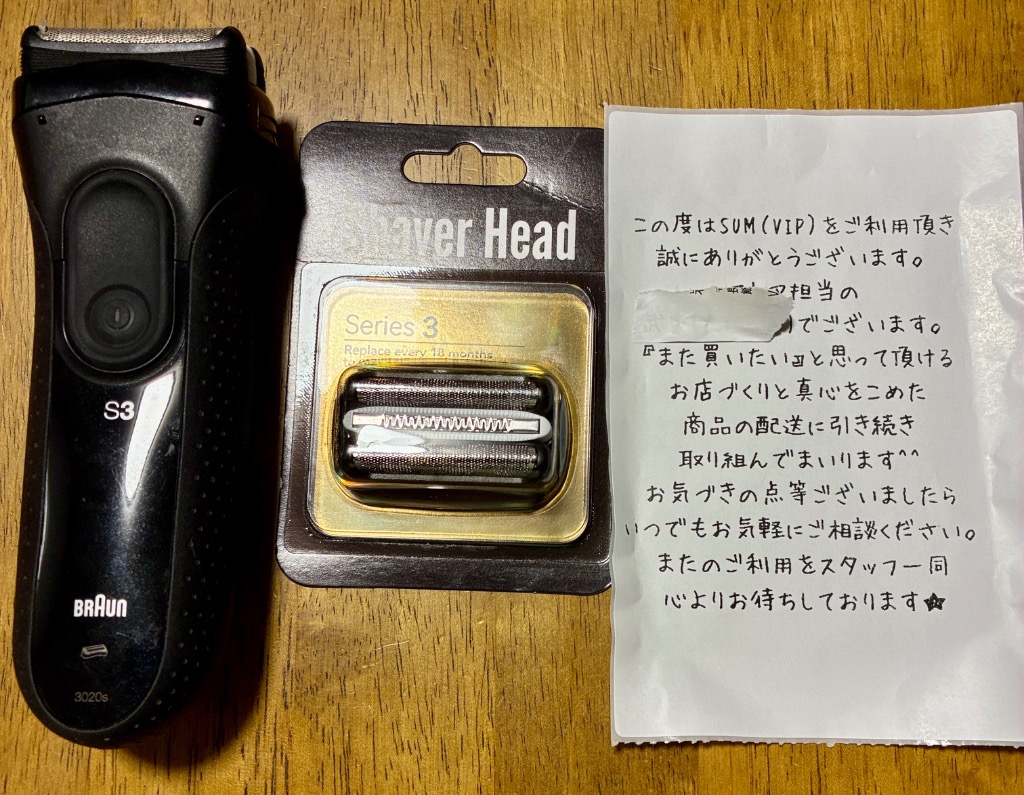 S3
BRAUN
3020s
Shaver Head
Series 3
Replace every 18 months
この度はSUM(VIP)をご利用頂き
誠にありがとうございます。
担当の
でございます。
『また買いたい』と思って頂ける
お店づくりと真心をこめた
商品の配送に引き続き
取り組んでまいります^^
お気づきの点等ございましたら
いつでもお気軽にご相談ください。
またのご利用をスタッフ一同
心よりお待ちしております★